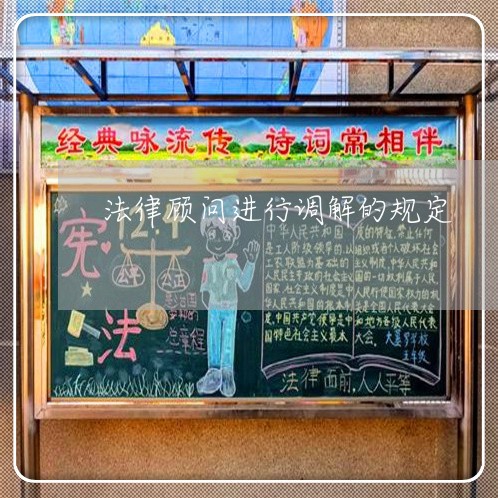 经典咏流传 诗词常相伴
法律顾问进行调解的规定
宪
法
12.4
公平 公正
总章程
中华人民共和国
是工人阶级领导的,以
工农联盟为基础的
人民民主专政的社会主义
国家。社会主义制度是中
华人民共和国的根本制
度。中国共产党领导是中
国特色社会主义最本
质的特征。禁止任何
组织或者个人破坏社会
主义制度。中华人民共和
国的一切权利属于人民。
人民行使国家权力的机
关是全国人民代表大会
和地方各级人民代表
大会。
五年级
法律面前,人人平等